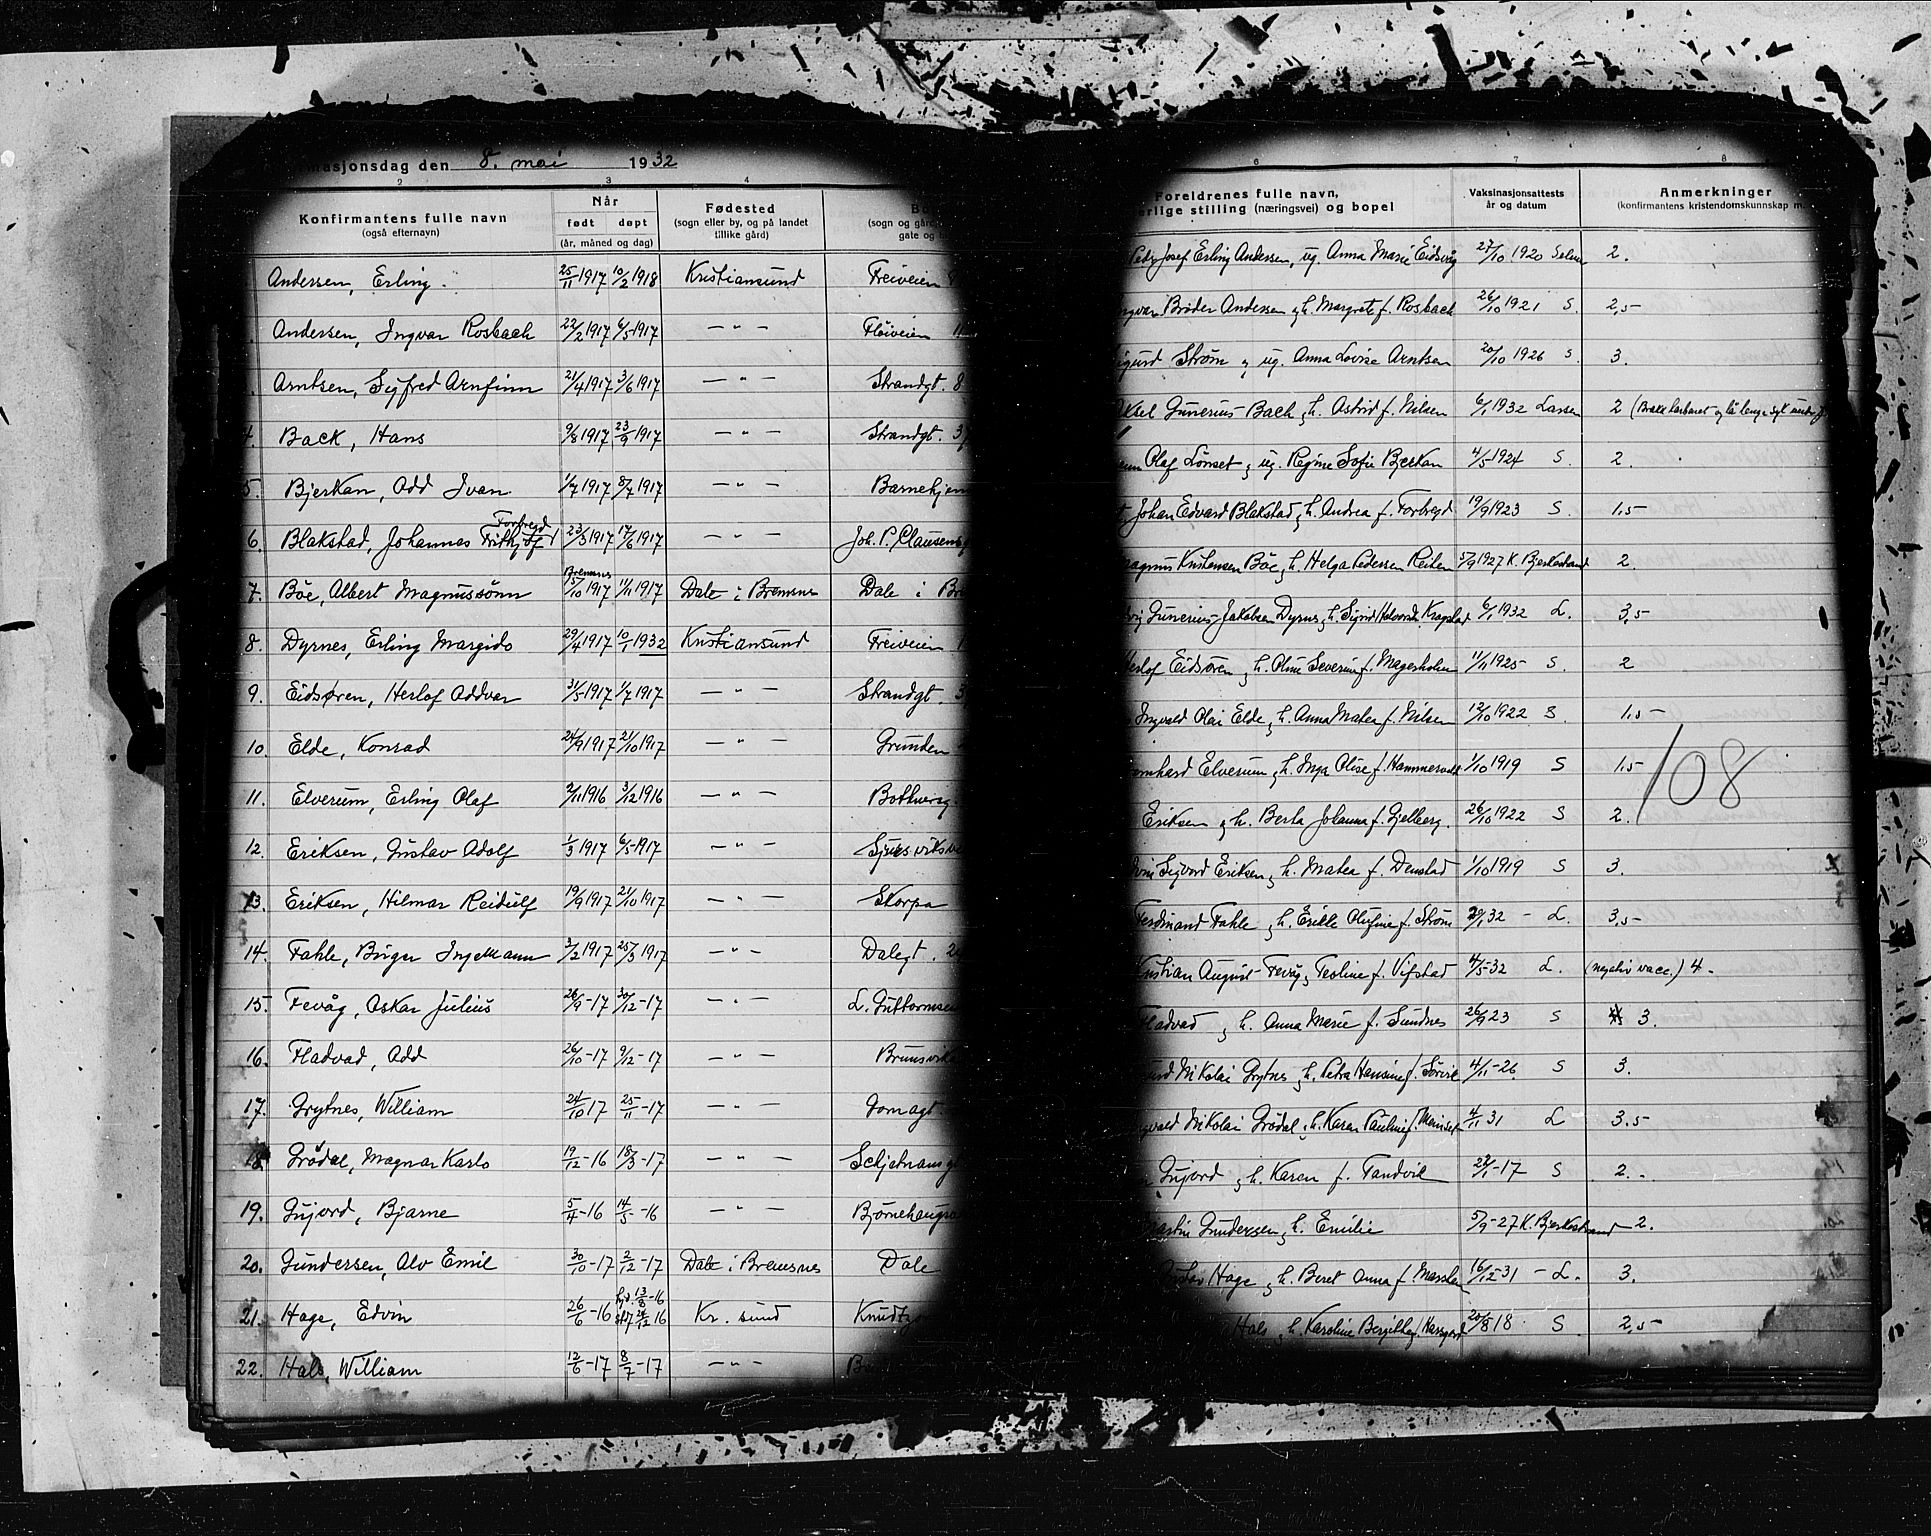 masjonsdag den 8. mai 1932
2 3 4
Konfirmantens fulle navn
(også efternavn)
Når
født døpt
(år, måned og dag)
Fødested
(sogn eller by, og på landet
tillike gård)
(sogn og gård
gate og
Andersen, Erling. 25/11 1917 10/2 1918 Kristiansund Freiveien
Andersen, Ingvar Rosbach 22/2 1917 6/5 1917 — " — Fløiveien
Arntsen, Sigfred Arnfinn 21/4 1917 3/6 1917 — " — Strandgt. 8
4. Back, Hans 9/8 1917 23/9 1917 — " — Strandgt. 37
5. Bjerkan, Odd Ivan 1/7 1917 8/7 1917 — " — Barnehjem
Forbregd
6. Blakstad, Johannes Frithjof 23/3 1917 17/6 1917 — " — Joh. P. Clausens
Bremsnes
7. Böe, Albert Magnussönn 15/10 1917 11/11 1917 Dale i Bremsnes Dale i Br
8. Dyrnes, Erling Margido 29/4 1917 10/1 1932 Kristiansund Freiveien
9. Eidsøren, Herlof Oddvar 31/5 1917 1/7 1917 — " — Strandgt. 3
10. Elde, Konrad 24/9 1917 21/10 1917 — " — Grunden
11. Elverum, Erling Olaf 2/11 1916 3/12 1916 — " —
12. Eriksen, Gustav Adolf 1/3 1917 6/5 1917 — " —
13. Eriksen, Hilmar Reidulf 19/9 1917 21/10 1917 — " — Skorpa
14. Fahle, Birger Ingemann 3/2 1917 25/3 1917 — " — Dalegt. 2
15. Fevåg, Oskar Julius 26/9-17 30/12-17 — " — L. Guttormsen
16. Fladvad, Odd 26/10-17 9/12-17 — " — Brunsvik
17. Grytnes, William 24/10 17 25/11-17 — " — Gomagt.
18. Grödal, Magnar Karlo 19/12-16 18/3-17 — " —
19. Gujord, Bjarne 5/4-16 14/5-16 — " — Bjørnehaug
20. Gundersen, Alv Emil 30/10-17 2/12-17 Dale i Bremsnes Dale
21. Hage, Edvin 26/6-16 13/8-16 24/12 16 Kr. sund Knudtzon
22. Hals, William 12/6-17 8/7-17 — " —
6 7 8
Foreldrenes fulle navn,
erlige stilling (næringsvei) og bopel
Vaksinasjonsattests
år og datum
Anmerkninger
(konfirmantens kristendomskunnskap m.
Josef Erling Andersen, ug. Anna Marie Eidsvåg 27/10 1920 Selmer 2.
Brøder Andersen og h. Margrete f. Rosbach 26/10 1921 S. 2,5
Sigurd Strøm og ug. Anna Lovise Arntsen 20/10 1926 S. 3.
Aksel Gunerius Bach og h. Astrid f. Nilsen 6/1 1932 Larsen 2
Olaf Lönset og ug. Regine Sofie Bjerkan 4/5 1924 S. 2.
Johan Edvard Blakstad og h. Andrea f. Forbregd 19/9 1923 S. 1,5
Magnus Kristensen Böe og h. Helga Pedersen Reiten 5/9 1927 K. Bjerkestrand 2.
Gunerius Jakobsen Dyrnes, h. Sigrid 6/1 1932 L. 3,5
Herlof Eidsøren og h. Oline Severine f. Magerholm 11/11 1925 S. 2
Ingvald Olai Elde og h. Anna Matea f. Nilsen 12/10 1922 S. 1,5
108
Elverum og h. Inga Olise f. Hammervold 1/10 1919 S 1,5
Eriksen og h. Berta Johanna f. Gjelberg. 26/10 1922 S 2.
Sigvard Eriksen og h. Matea f. Denstad 1/10 1919 S 3. x
Ferdinand Fahle og h. Erikke Olufine f. Strøm 29/1 32 – L. 3,5
Kristian August Fevåg, Teoline f. Vifstad 4/5-32 L. (negativ vacc.) 4
Fladvad og h. Anna Marie f. Sundnes 26/9 23 S 3.
Nikolai Grytnes og h. Petra Hansine f. Sørvik 4/11-26. S 3.
Nikolai Grødal og h. Karen Pauline f. 4/11 31 L 3.5
Gujord og h. Karen f. Tandvik 22/1-17 S 2.
Martin Gundersen og h. Emilie 5/9-27 K. Bjerkestrand 2.
Hage og h. Beret Anna f. 16/12-31 – L. 3.
Hals og h. Karoline Bergitte f. 20/8 18 S 2,5